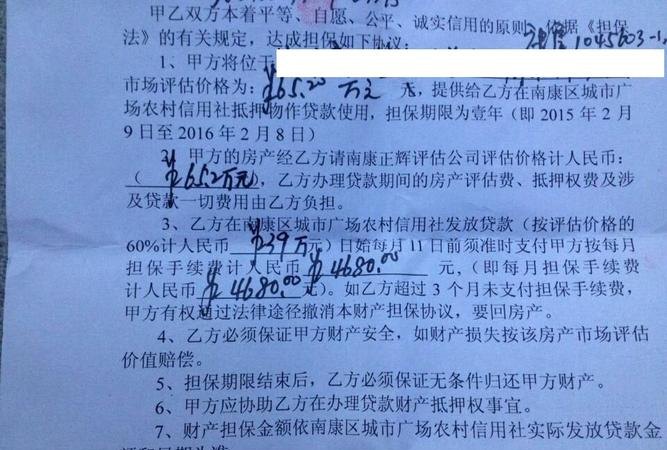 甲乙双方本着平等、自愿、公平、诚实信用的原则，依据《担保
法》的有关规定，达成担保如下协议：
1045603-1
1、甲方将位于
市场评估价格为：¥65.20万元 元，提供给乙方在南康区城市广
场农村信用社抵押物作贷款使用，担保期限为壹年（即 2015 年 2 月
9 日至 2016 年 2 月 8 日）
2、甲方的房产经乙方请南康正辉评估公司评估价格计人民币：
（¥65.2万元），乙方办理贷款期间的房产评估费、抵押权费及涉
及贷款一切费用由乙方负担。
3、乙方在南康区城市广场农村信用社发放贷款（按评估价格的
60%计人民币 ¥39万元）日始每月 11 日前须准时支付甲方按每月
担保手续费计人民币 ¥4680.00 元，（即每月担保手续费
计人民币 ¥4680.00 元）。如乙方超过 3 个月未支付担保手续费，
甲方有权通过法律途径撤消本财产担保协议，要回房产。
4、乙方必须保证甲方财产安全，如财产损失按该房产市场评估
价值赔偿。
5、担保期限结束后，乙方必须保证无条件归还甲方财产。
6、甲方应协助乙方在办理贷款财产抵押权事宜。
7、财产担保金额依南康区城市广场农村信用社实际发放贷款金